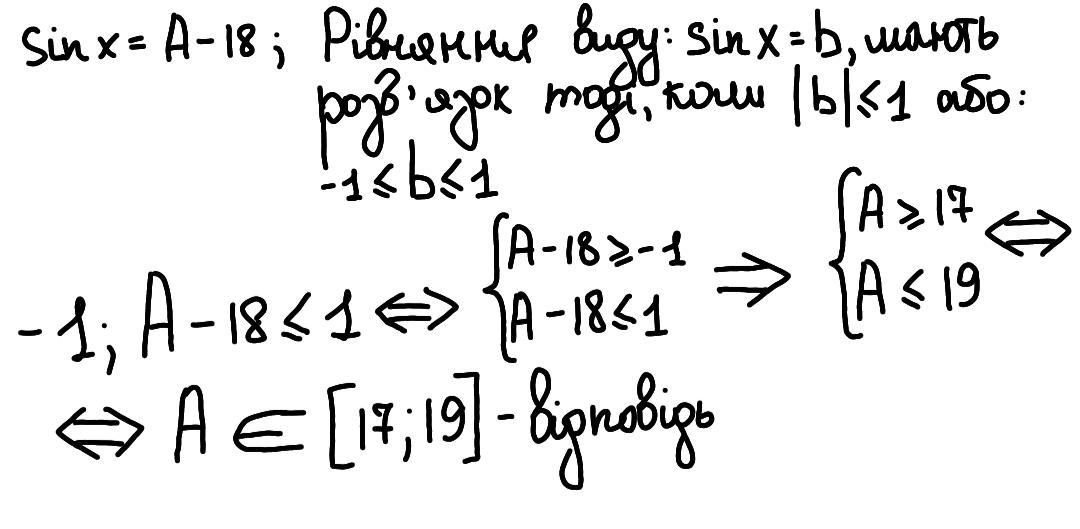 sin x = A - 18 ; Рівняння виду: sin x = b, мають
розв'язок тоді, коли |b| ⩽ 1 або:
-1 ⩽ b ⩽ 1
-1; A - 18 ⩽ 1 ⇔ { A - 18 ⩾ -1 A - 18 ⩽ 1 ⇒ { A ⩾ 17 A ⩽ 19 ⇔
⇔ A ∈ [17; 19] - відповідь